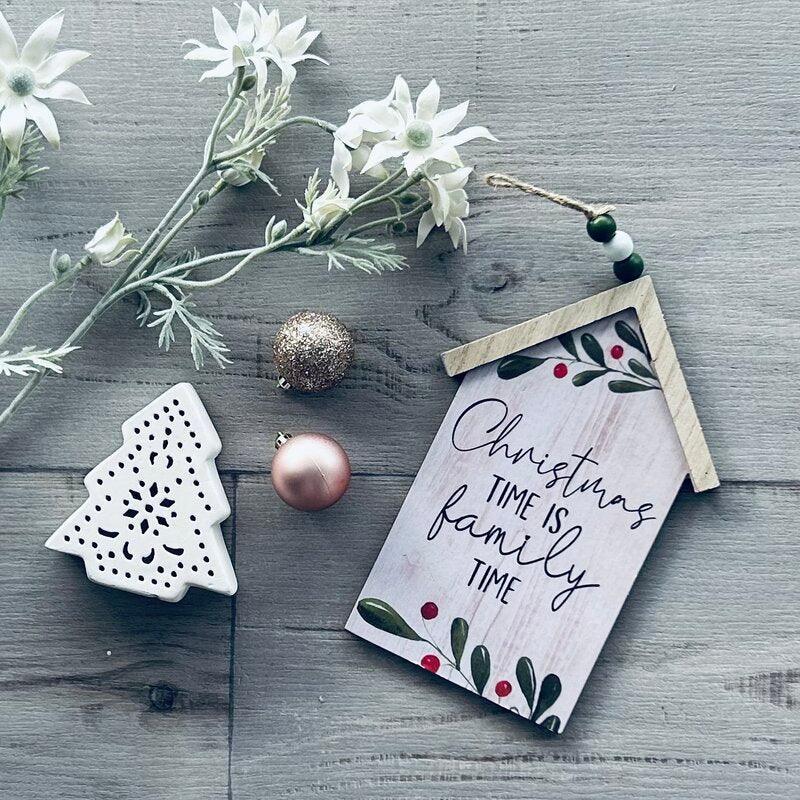 Christmas
TIME IS
family
TIME